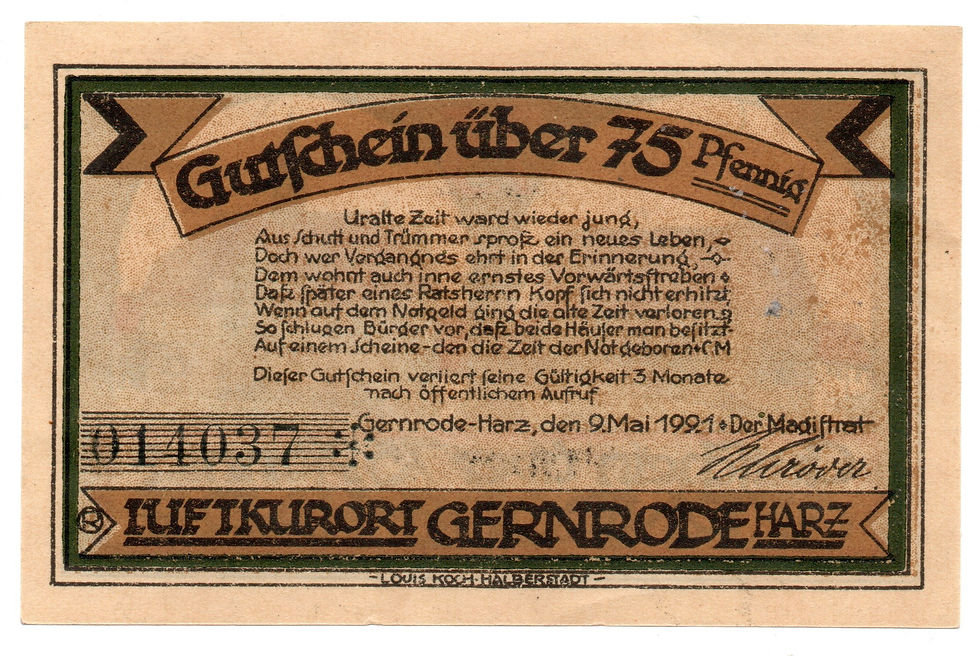 Gutschein über 75 Pfennig
Uralte Zeit ward wieder jung,
Aus Schutt und Trümmer sproß ein neues Leben,
Doch wer Vergangnes ehrt in der Erinnerung,
Dem wohnt auch inne ernstes Vorwärtsstreben
Daß später eines Ratsherrn Kopf sich nicht erhitzt,
Wenn auf dem Notgeld ging die alte Zeit verloren,
So schlugen Bürger vor, daß beide Häuser man besitzt
Auf einem Scheine-den die Zeit der Not geboren. C.M
Dieser Gutschein verliert seine Gültigkeit 3 Monate
nach öffentlichem Aufruf.
Gernrode-Harz, den 9. Mai 1921 Der Magistrat
014037
LUFTKURORT GERNRODE HARZ
-LOUIS KOCH-HALBERSTADT-